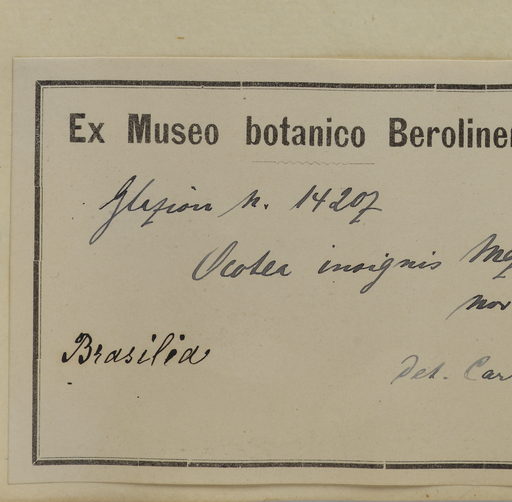 Ex Museo botanico Beroliner
Glaziou n. 14207
Ocotea insignis Mez
nov
Brasilia
Det. Car